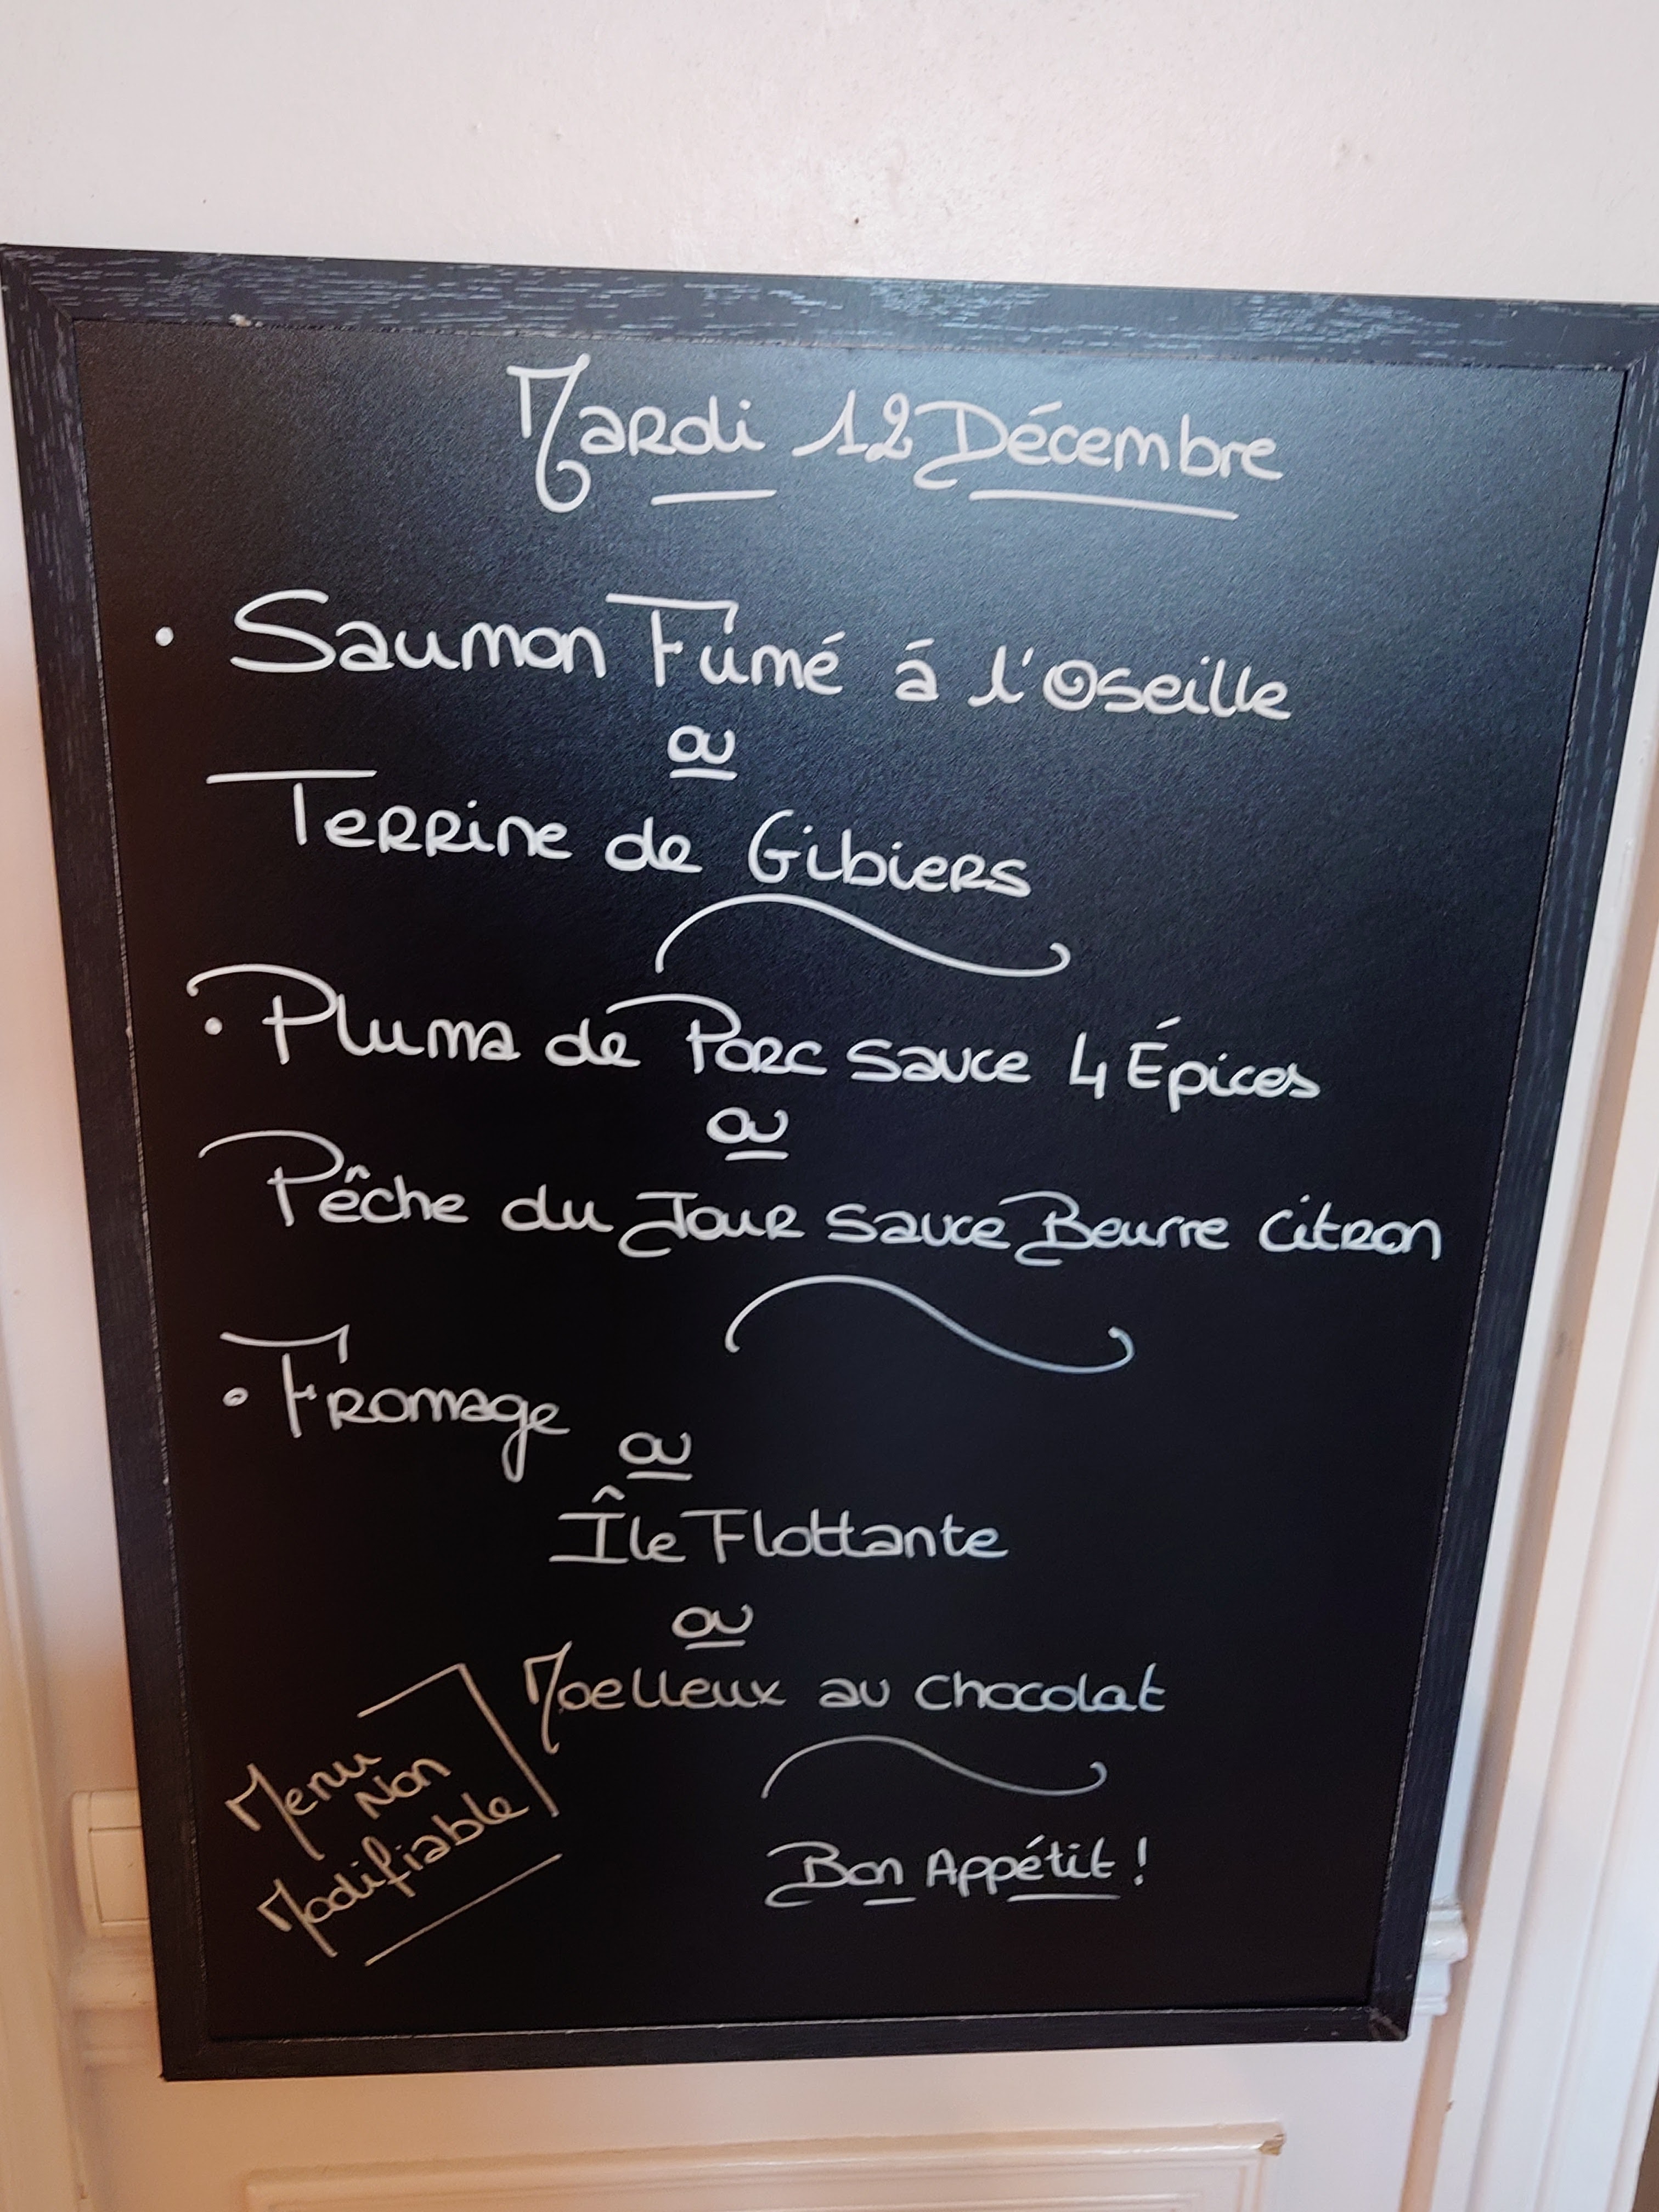 Mardi 12 Décembre
• Saumon Fumé à l'Oseille
ou
Terrine de Gibiers
• Pluma de Porc sauce 4 Épices
ou
Pêche du Jour sauce Beurre citron
• Fromage
ou
Île Flottante
ou
Moelleux au chocolat
Menu
Non
Modifiable
Bon Appétit !